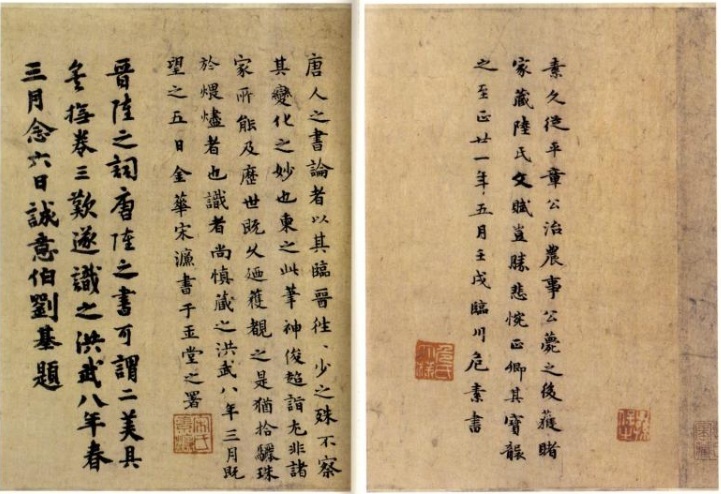 素久從平章公治農事公薨之後獲睹
家藏陸氏文賦豈勝悲惋正卿其寶襲
之至正廿一年五月壬戌臨川危素書
唐人之書論者以其臨晉徃、少之殊不察
其變化之妙也東之此筆神俊超詣尤非諸
家所能及歷世既久廼獲觀之是猶拾驪珠
於煨燼者也識者尚慎藏之洪武八年三月既
望之五日金華宋濂書于玉堂之署
晉陸之詞唐陸之書可謂二美具
矣撫卷三歎遂識之洪武八年春
三月念六日誠意伯劉基題